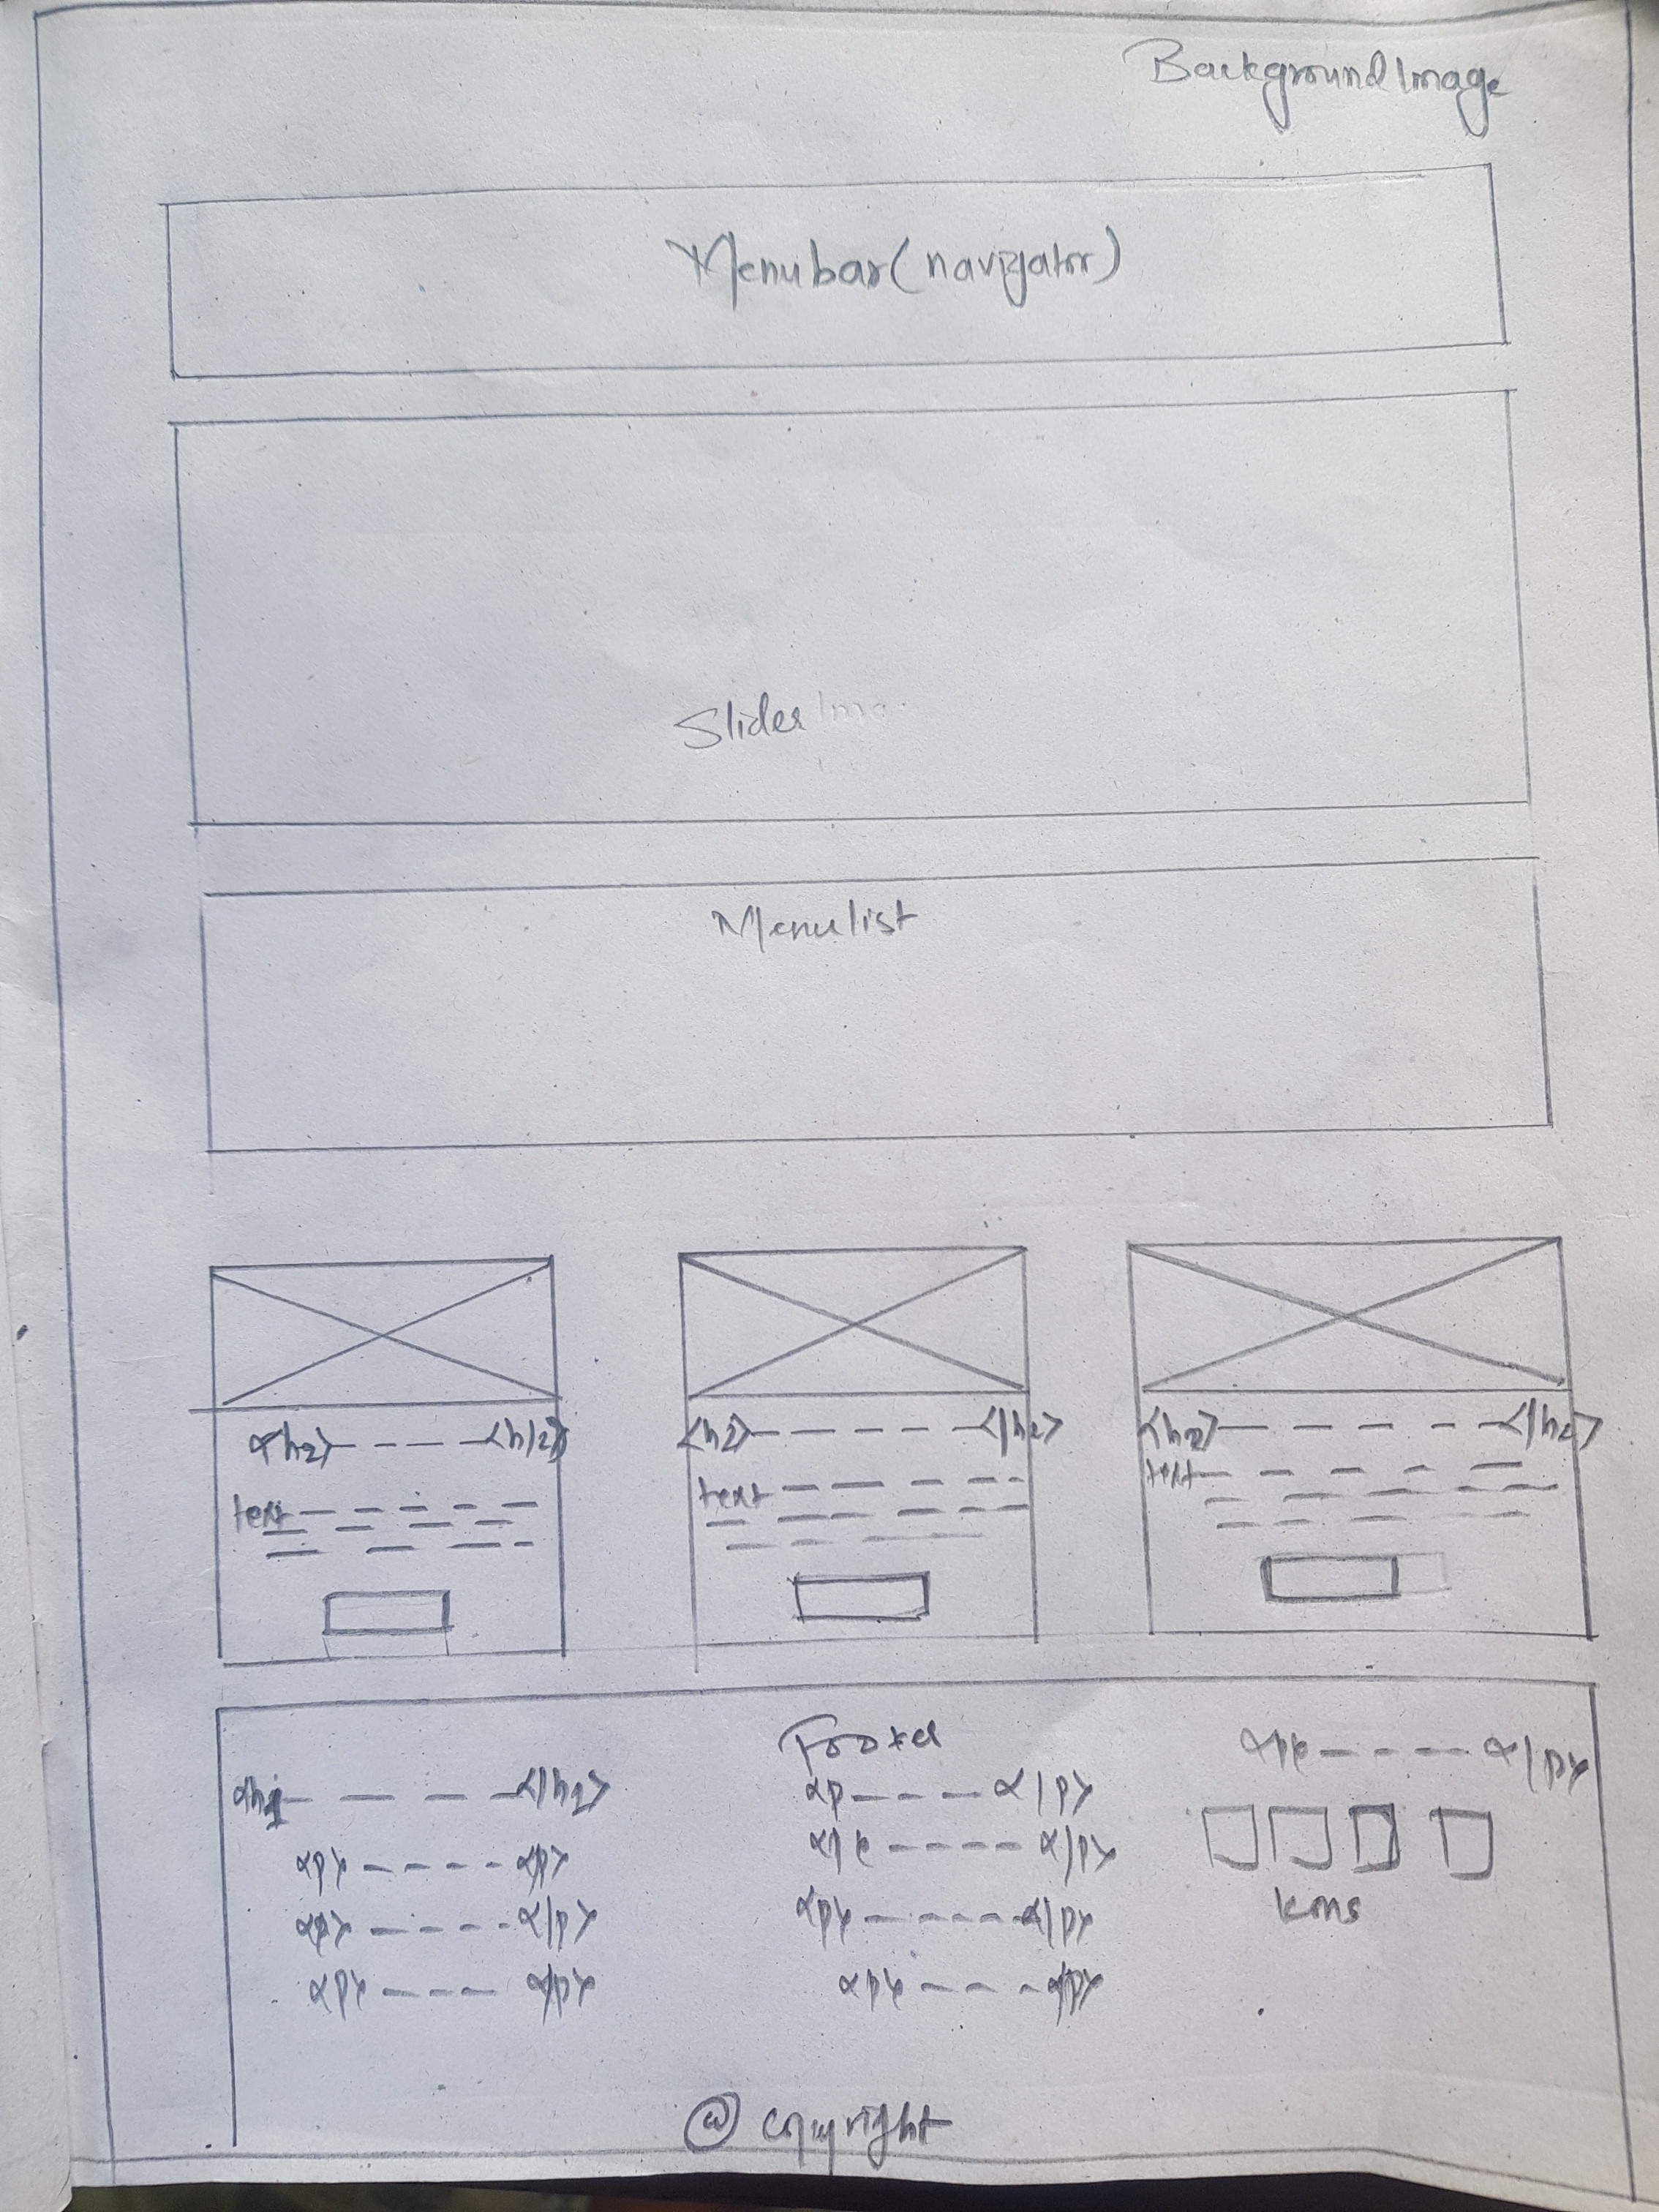 Background Image
Menubar (navigator)
Slider Ima
Menulist
<h2> <h/2>
<h2> </h2>
<h2> </h2>
text
text
text
Footer
<h1 </h1>
<p> <p>
<p> </p>
<p> </p>
<p </p>
<p> </p>
<p> </p>
<p> </p>
<p> </p>
Icons
@ copyright